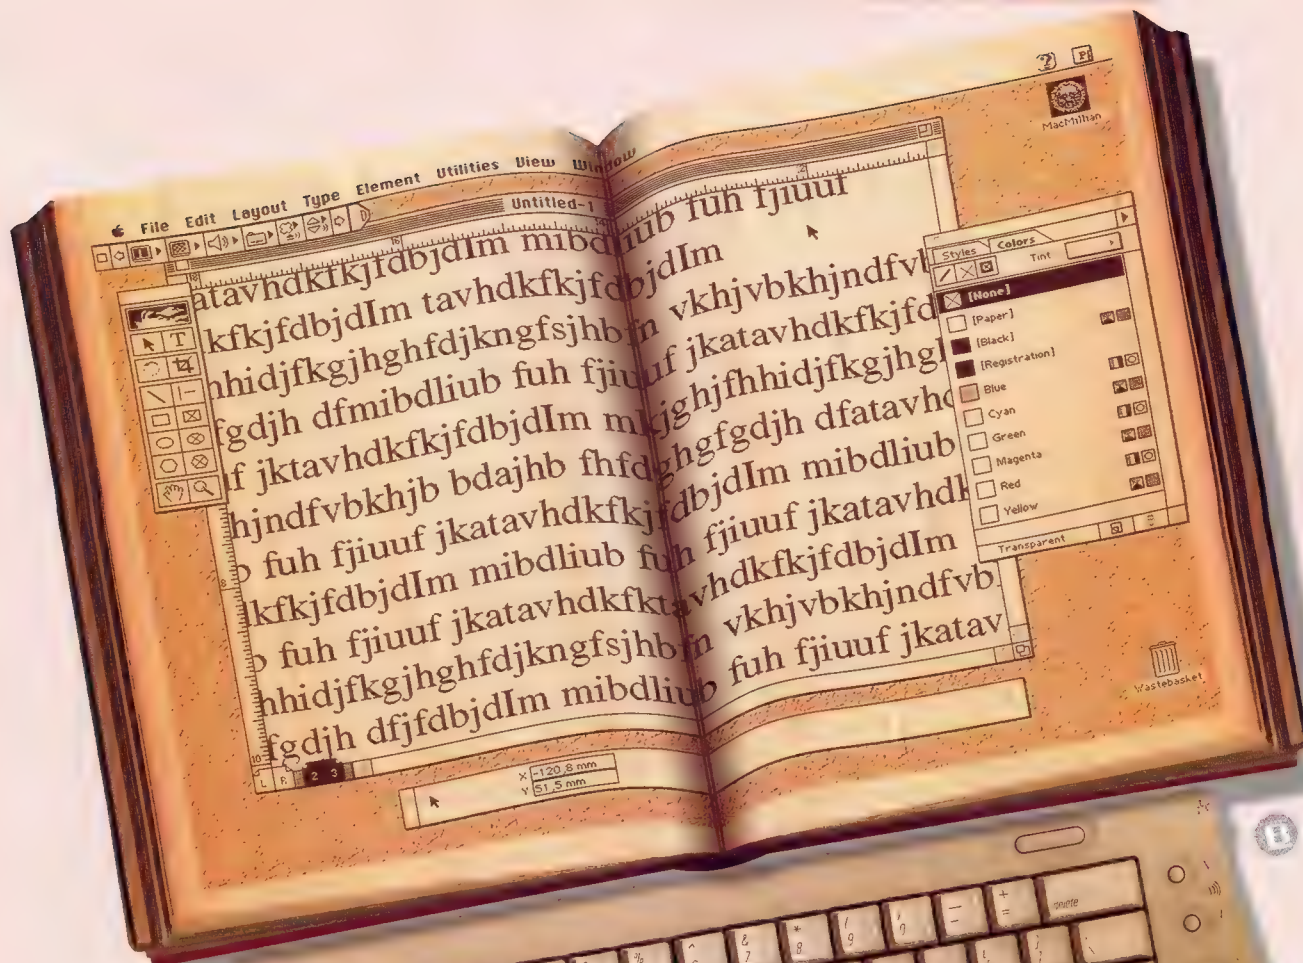 File Edit Layout Type Element Utilities View Window
Untitled-1
atavhdkfkjfdbjdIm mibdliub fuh fjiuuf
kfkjfdbjdIm tavhdkfkjfdbjdIm
hhidjfkgjhghfdjkngfsjhbfn vkhjvbkhjndfvb
fgdjh dfmibdliub fuh fjiuuf jkatavhdkfkjfd
uf jktavhdkfkjfdbjdIm mkjghjfhhidjfkgjhgl
hjndfvbkhjb bdajhb fhfdghgfgdjh dfatavhd
b fuh fjiuuf jkatavhdkfkjfdbjdIm mibdliub
kfkjfdbjdIm mibdliub fuh fjiuuf jkatavhdk
b fuh fjiuuf jkatavhdkfktavhdkfkjfdbjdIm
hhidjfkgjhghfdjkngfsjhbfn vkhjvbkhjndfvb
fgdjh dfjfdbjdIm mibdliub fuh fjiuuf jkatav
MacMilhan
Styles Colors
Tint
[None]
[Paper]
[Black]
[Registration]
Blue
Cyan
Green
Magenta
Red
Yellow
Transparent
Wastebasket
L R 2 3
X -120,8 mm
Y 51,5 mm
delete